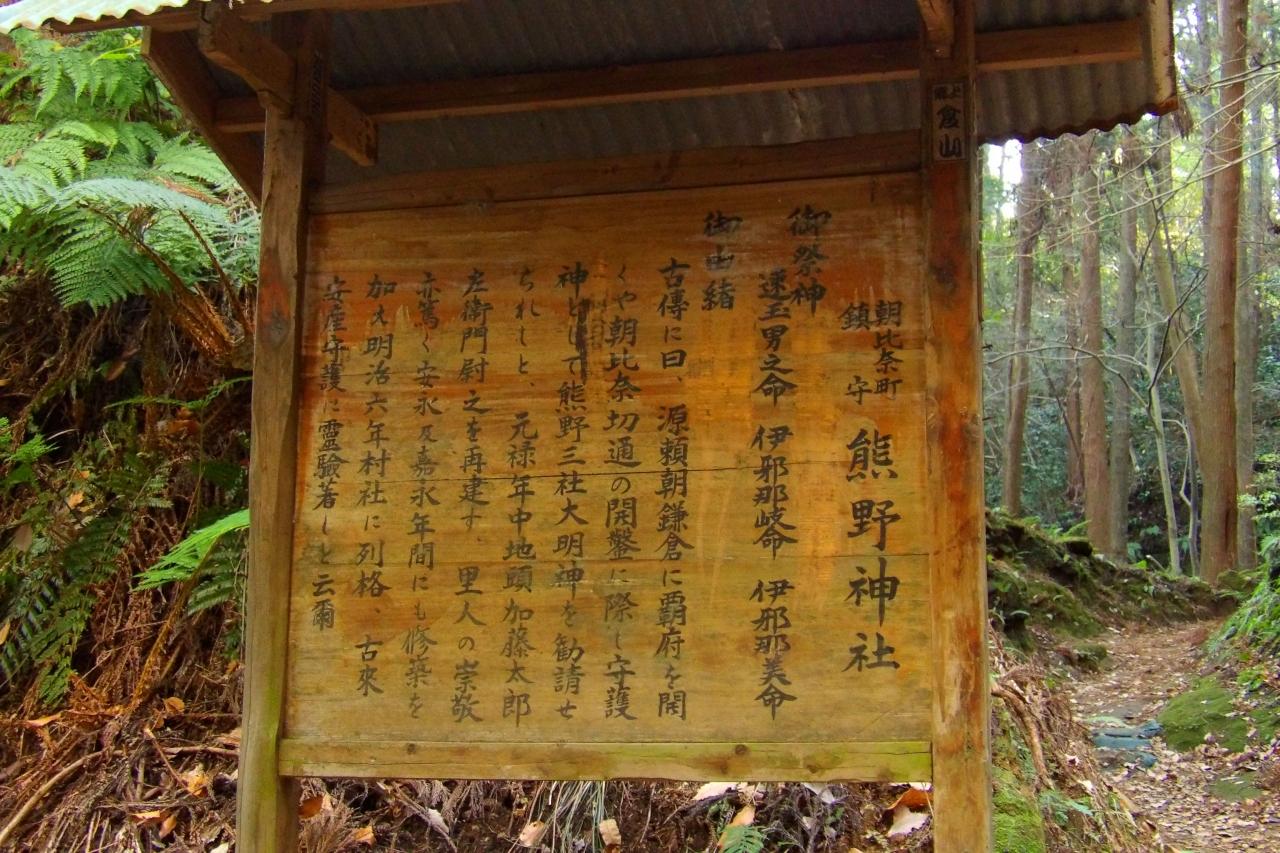 朝比奈町
鎮守
熊野神社
御祭神
速玉男之命 伊邪那岐命 伊邪那美命
御由緒
古傳に曰、源頼朝鎌倉に覇府を開
くや朝比奈切通の開鑿に際し守護
神として熊野三社大明神を勧請せ
られしと、元禄年中地頭加藤太郎
左衛門尉之を再建す 里人の崇敬
亦篤く安永及嘉永年間にも修築を
加え明治六年村社に列格、古來
安産守護に霊験著しと云爾